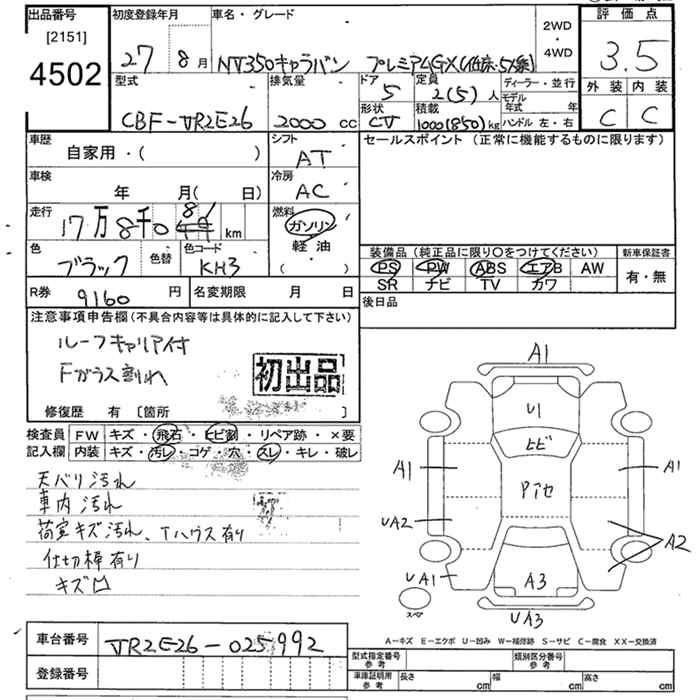 出品番号
[2151]
4502
初度登録年月
27 8月
車名・グレード
NV350キャラバン プレミアムGX(低床・5人乗)
2WD
・
4WD
評価点
3.5
外装 内装
C C
型式
CBF-VR2E26
排気量
2000 cc
ドア
5
形状
CV
定員
2(5)人
積載
1000(850)kg
ディーラー・並行
モデル年式 年
ハンドル 左・右
車歴
自家用・( )
シフト
AT
セールスポイント(正常に機能するものに限ります)
車検
年 月( 日)
冷房
AC
走行
17万8千0 km
燃料
ガソリン
軽油・
( )
色
ブラック
色替
色コード
KH3
装備品(純正品に限り○をつけてください)
新車保証書
PS PW ABS エアB AW
SR ナビ TV カワ
有・無
R券
9160円
名変期限 月 日
後日品
注意事項申告欄(不具合内容等は具体的に記入して下さい)
ルーフキャリア付
Fガラス割れ
初出品
修復歴 有 [箇所 ]
検査員
記入欄
FW キズ・飛石・ヒビ割・リペア跡・×要
内装 キズ・汚レ・コゲ・穴・スレ・キレ・破レ
天バリ汚れ
車内汚れ
荷室キズ汚れ、Tハウス有り
仕切棒有り
キズ凹
A1
U1
ヒビ
A1
A1
Pイセ
UA2
A2
UA1
A3
スペア
UA3
A-キズ E-エクボ U-凹み W-補修跡 S-サビ C-腐食 XX-交換済
車台番号
VR2E26-025992
登録番号
型式指定番号
参考
類別区分番号
参考
車庫証明用
参考
長さ cm
幅 cm
高さ cm